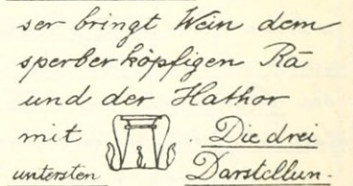 ser bringt Wein dem
sperberköpfigen Rā
und der Hathor
mit . Die drei
untersten Darstellun-